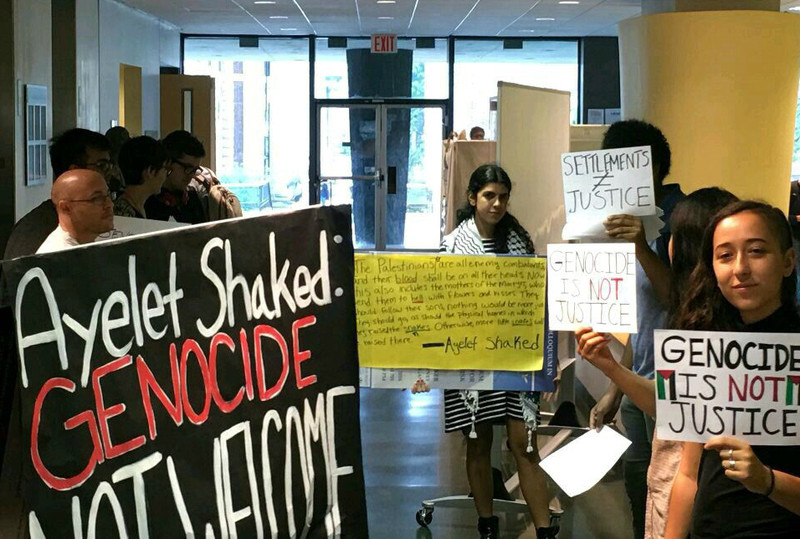 EXIT
Ayelet Shaked:
GENOCIDE
NOT WELCOME
The Palestinians are all enemy combatants
and their blood shall be on all their heads. Now
this also includes the mothers of the martyrs, who
send them to hell with flowers and kisses. They
should follow their sons, nothing would be more just
they should go, as should the physical homes in which
they raised the snakes. Otherwise, more little snakes will
be raised there. — Ayelet Shaked
COLLOQUIUM IN
SETTLEMENTS
≠
JUSTICE
GENOCIDE
IS NOT
JUSTICE
GENOCIDE
IS NOT
JUSTICE